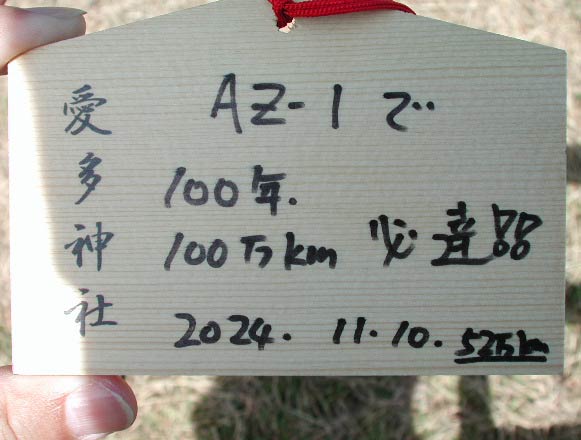 愛多神社
AZ-1 で
100年.
100万km 必達!!
2024. 11. 10. 52万km